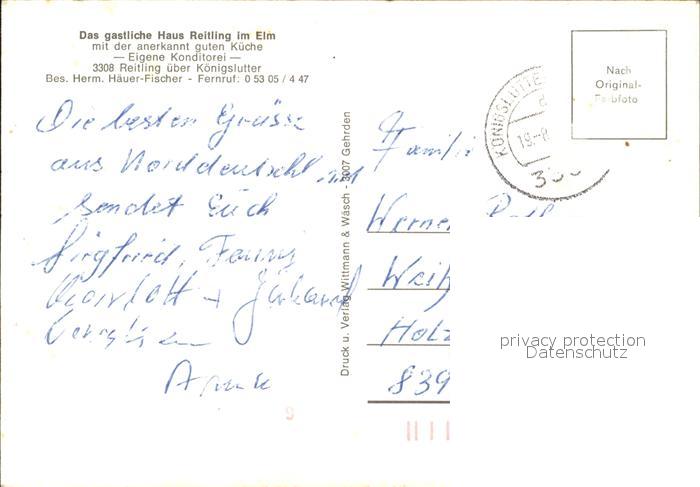 Das gastliche Haus Reitling im Elm
mit der anerkannt guten Küche
— Eigene Konditorei —
3308 Reitling über Königslutter
Bes. Herm. Häuer-Fischer - Fernruf: 0 53 05 / 4 47
Die besten Grüsse
aus Norddeutschland
sendet Euch
Siegfried, Fanny
+
Druck u. Verlag Wittmann & Wäsch - 3007 Gehrden
Nach
Original-
Farbfoto
KÖNIGSLUTTE
19.-8
Familie
Werner
Weih
Holz
839
privacy protection
Datenschutz
9